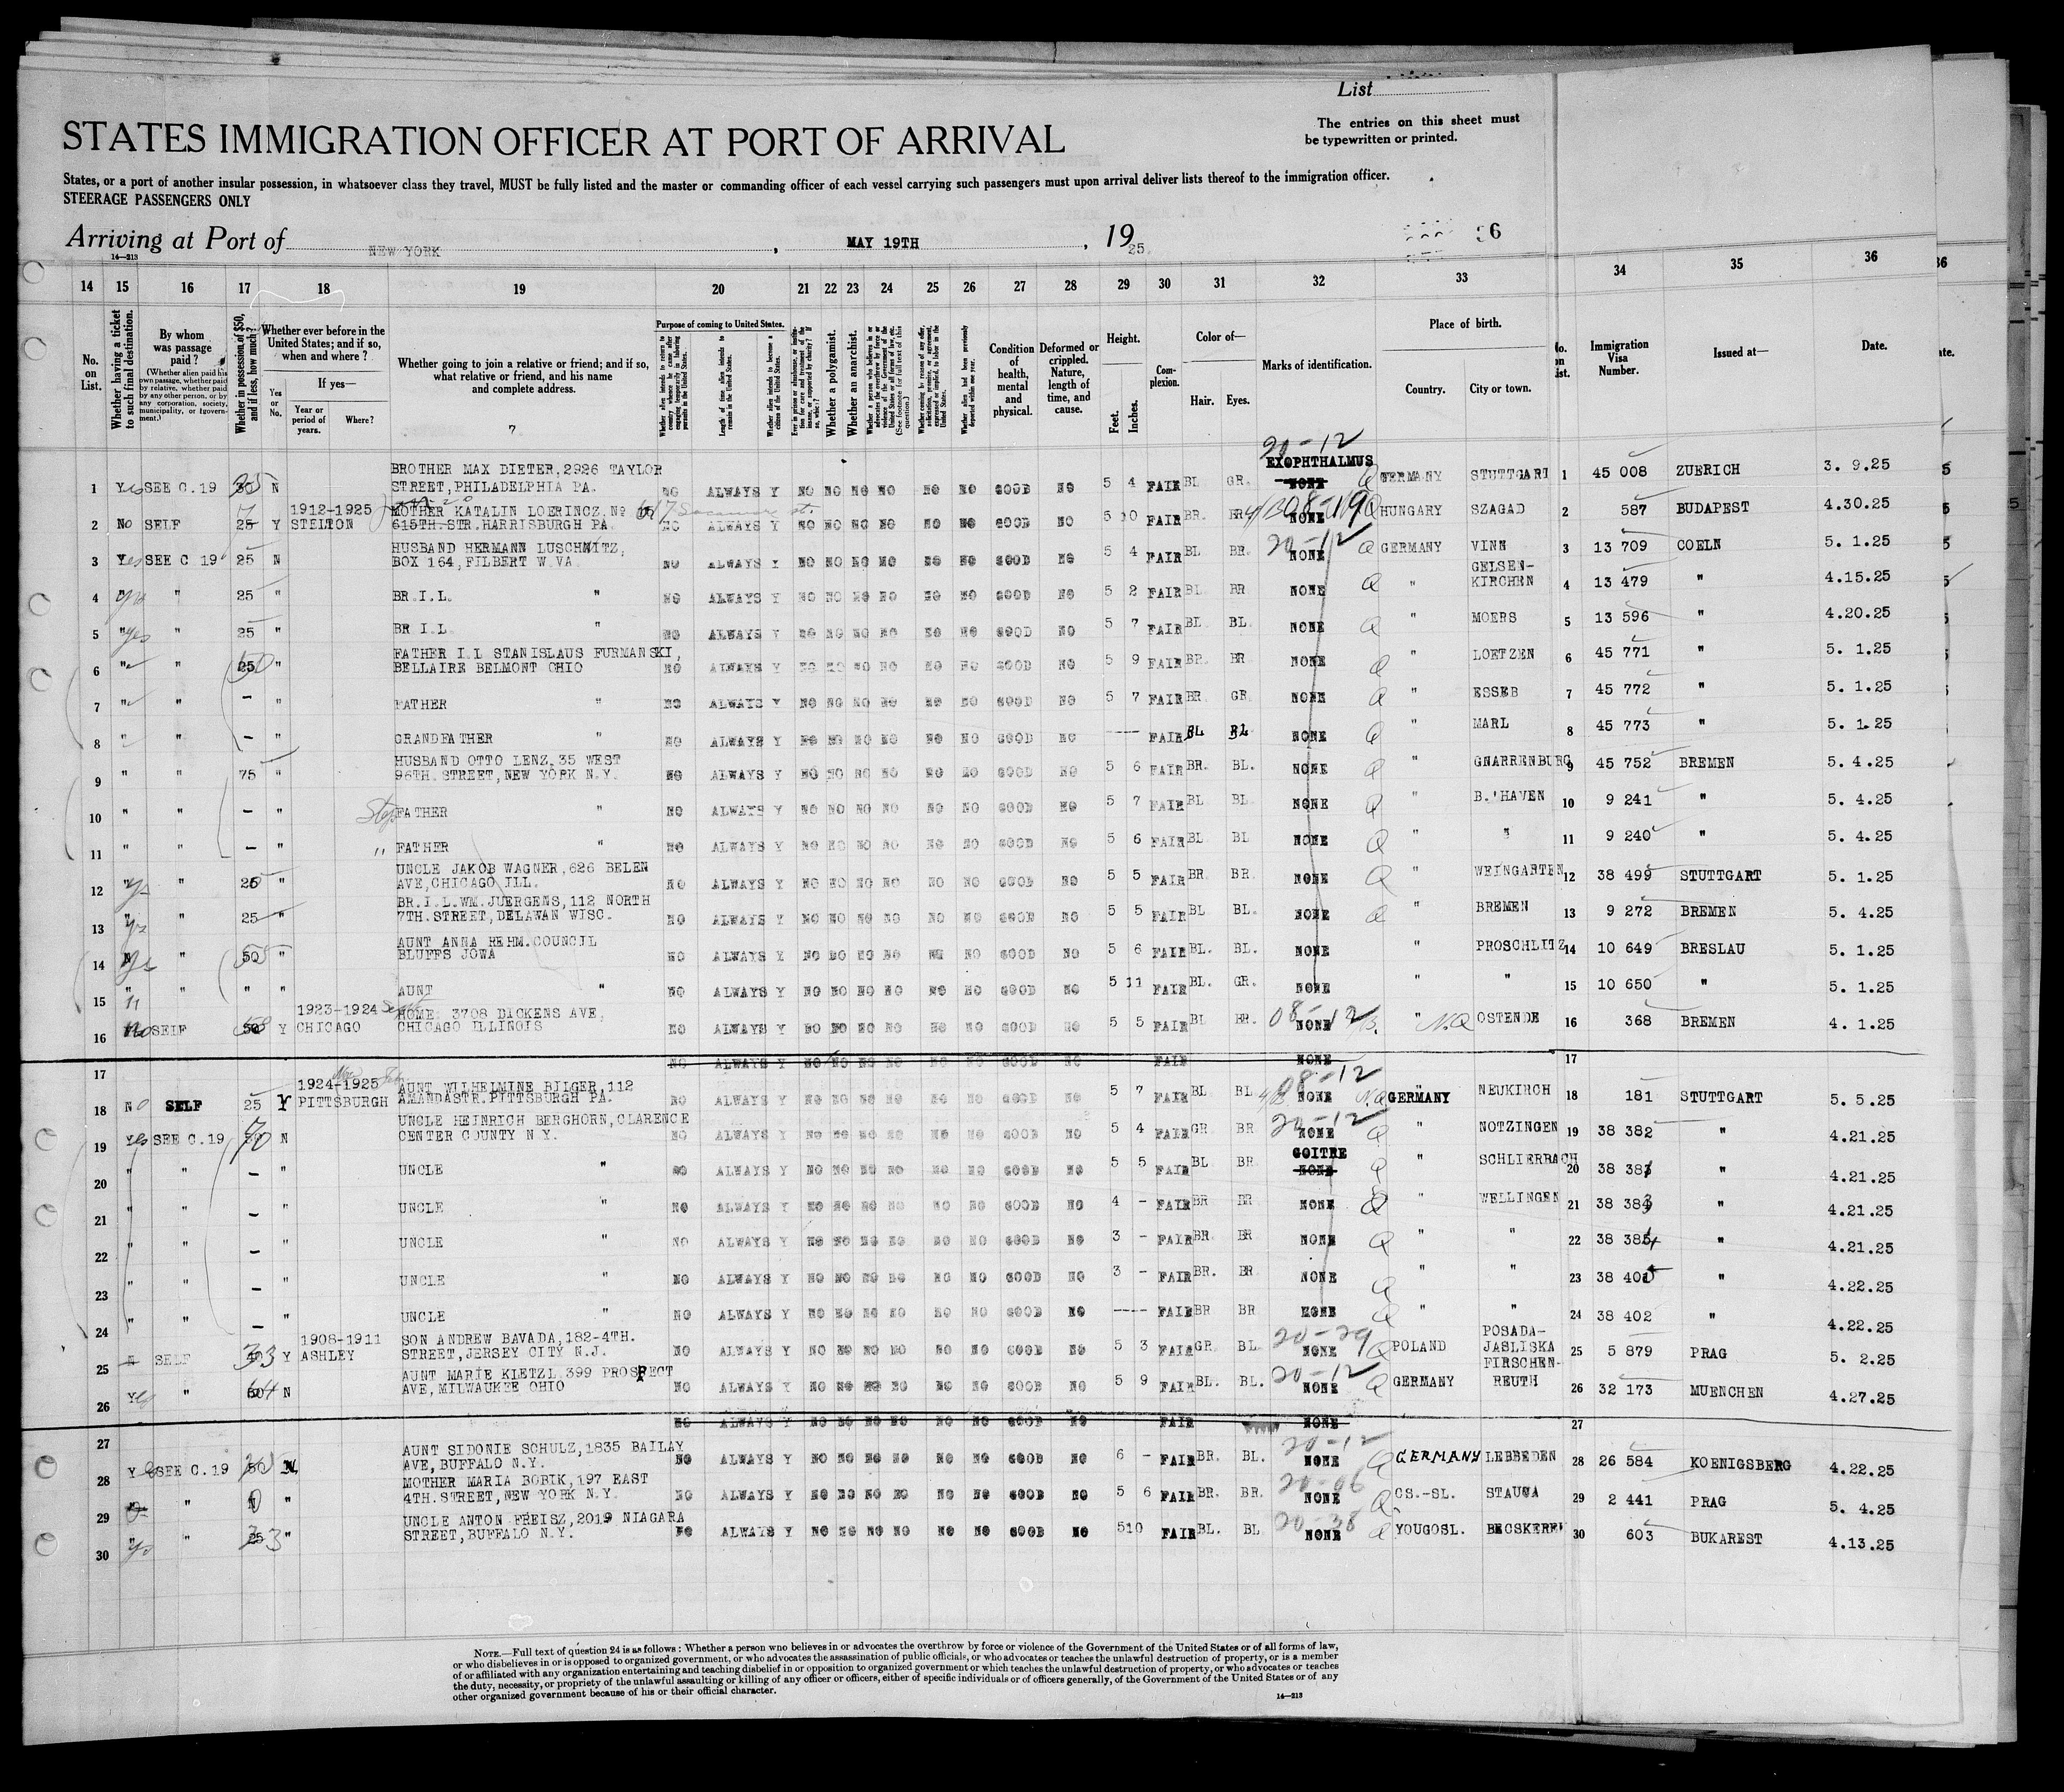 List
STATES IMMIGRATION OFFICER AT PORT OF ARRIVAL
The entries on this sheet must
be typewritten or printed.
States, or a port of another insular possession, in whatsoever class they travel, MUST be fully listed and the master or commanding officer of each vessel carrying such passengers must upon arrival deliver lists thereof to the immigration officer.
STEERAGE PASSENGERS ONLY
Arriving at Port of NEW YORK, MAY 19TH, 1925.
14—213
14 15 16 17 18 19 20 21 22 23 24 25 26 27 28 29 30 31 32 33 34 35 36
No. on List.
Whether having a ticket to such final destination.
By whom was passage paid?
(Whether alien paid his own passage, whether paid by relative, whether paid by any other person, or by any corporation, society, municipality, or government.)
Whether in possession of $50, and if less, how much?
Whether ever before in the United States; and if so, when and where?
Yes or No.
If yes—
Year or period of years.
Where?
Whether going to join a relative or friend; and if so, what relative or friend, and his name and complete address.
Purpose of coming to United States.
Length of time alien intends to remain in the United States.
Whether alien intends to become a citizen of the United States.
Whether a polygamist.
Whether an anarchist.
Condition of health, mental and physical.
Deformed or crippled. Nature, length of time, and cause.
Height.
Feet. Inches.
Complexion.
Color of—
Hair. Eyes.
Marks of identification.
Place of birth.
Country. City or town.
Immigration Visa Number.
Issued at—
Date.
20-12
1 Yes SEE C.19 N BROTHER MAX DIETER, 2926 TAYLOR STREET, PHILADELPHIA PA. NO ALWAYS Y NO NO NO NO NO NO GOOD NO 5 4 FAIR BL GR. EXOPHTHALMUS NONE GERMANY STUTTGART 1 45 008 ZUERICH 3. 9.25
2 No SELF 25 Y 1912-1925 STELTON MOTHER KATALIN LOERINCZ, No 615TH STR. HARRISBURGH PA. NO ALWAYS Y NO NO NO NO NO NO GOOD NO 5 10 FAIR BR. BR 08-19 NONE HUNGARY SZAGAD 2 587 BUDAPEST 4.30.25
3 Yes SEE C 19 25 N HUSBAND HERMANN LUSCHNITZ, BOX 164, FILBERT W.VA. NO ALWAYS Y NO NO NO NO NO NO GOOD NO 5 4 FAIR BL BR. 20-12 NONE GERMANY VINN 3 13 709 COELN 5. 1.25
4 yes " 25 " BR.I.L. " NO ALWAYS Y NO NO NO NO NO NO GOOD NO 5 2 FAIR BL BR NONE " GELSEN-KIRCHEN 4 13 479 " 4.15.25
5 "yes " 25 " BR I.L. " NO ALWAYS Y NO NO NO NO NO NO GOOD NO 5 7 FAIR BL. BL. NONE " MOERS 5 13 596 " 4.20.25
6 " " " FATHER I.L STANISLAUS FURMANSKI, BELLAIRE BELMONT OHIO NO ALWAYS Y NO NO NO NO NO NO GOOD NO 5 9 FAIR BR. BR NONE " LOETZEN 6 45 771 " 5. 1.25
7 " " - " FATHER " NO ALWAYS Y NO NO NO NO NO NO GOOD NO 5 7 FAIR BR GR. NONE " ESSEB 7 45 772 " 5. 1.25
8 " - " GRANDFATHER " NO ALWAYS Y NO NO NO NO NO NO GOOD NO ---- FAIR BL BL NONE " MARL 8 45 773 " 5. 1.25
9 " " 75 " HUSBAND OTTO LENZ, 35 WEST 96TH. STREET, NEW YORK N.Y. NO ALWAYS Y NO NO NO NO NO NO GOOD NO 5 6 FAIR BR. BL. NONE " GNARRENBURG 9 45 752 BREMEN 5. 4.25
10 " " - " Step FATHER " NO ALWAYS Y NO NO NO NO NO NO GOOD NO 5 7 FAIR BL BL NONE " B.'HAVEN 10 9 241 " 5. 4.25
11 " " - " " FATHER " NO ALWAYS Y NO NO NO NO NO NO GOOD NO 5 6 FAIR BL BL NONE " " 11 9 240 " 5. 4.25
12 "yes " 25 " UNCLE JAKOB WAGNER, 626 BELEN AVE, CHICAGO ILL. NO ALWAYS Y NO NO NO NO NO NO GOOD NO 5 5 FAIR BR. BR. NONE " WEINGARTEN 12 38 499 STUTTGART 5. 1.25
13 "yes " 25 " BR.I.L.WM.JUERGENS, 112 NORTH 7TH. STREET, DELAWAN WISC. NO ALWAYS Y NO NO NO NO NO NO GOOD NO 5 5 FAIR BL BL. NONE " BREMEN 13 9 272 BREMEN 5. 4.25
14 yes " 50 " AUNT ANNA REHM. COUNCIL BLUFFS JOWA NO ALWAYS Y NO NO NO NO NO NO GOOD NO 5 6 FAIR BL. BL. NONE " PROSCHLITZ 14 10 649 BRESLAU 5. 1.25
15 " " " " AUNT " NO ALWAYS Y NO NO NO NO NO NO GOOD NO 5 11 FAIR BL. GR. NONE " " 15 10 650 " 5. 1.25
16 No SELF 50 Y 1923-1924 Sept CHICAGO HOME: 3708 DICKENS AVE, CHICAGO ILLINOIS NO ALWAYS Y NO NO NO NO NO NO GOOD NO 5 5 FAIR BL BR. 08-12 NONE " N.Q OSTENDE 16 368 BREMEN 4. 1.25
17 NO ALWAYS Y NO NO NO NO NO NO GOOD NO FAIR NONE 17
18 No SELF 25 Y Nov 1924-1925 PITTSBURGH AUNT WILHELMINE BILGER, 112 AMANDASTR. PITTSBURGH PA. NO ALWAYS Y NO NO NO NO NO NO GOOD NO 5 7 FAIR BL BL 08-12 NONE N.Q GERMANY NEUKIRCH 18 181 STUTTGART 5. 5.25
19 Yes SEE C.19 N UNCLE HEINRICH BERGHORN, CLARENCE CENTER COUNTY N.Y. NO ALWAYS Y NO NO NO NO NO NO GOOD NO 5 4 FAIR GR. BR 20-12 NONE " NOTZINGEN 19 38 382 " 4.21.25
20 " " - " UNCLE " NO ALWAYS Y NO NO NO NO NO NO GOOD NO 5 5 FAIR BL BR. GOITRE NONE " SCHLIERBACH 20 38 381 " 4.21.25
21 " " - " UNCLE " NO ALWAYS Y NO NO NO NO NO NO GOOD NO 4 - FAIR BR BR NONE " WELLINGEN 21 38 383 " 4.21.25
22 " " - " UNCLE " NO ALWAYS Y NO NO NO NO NO NO GOOD NO 3 - FAIR BR. BR NONE " " 22 38 384 " 4.21.25
23 " " - " UNCLE " NO ALWAYS Y NO NO NO NO NO NO GOOD NO 3 - FAIR BR. BR NONE " " 23 38 401 " 4.22.25
24 " " - " UNCLE " NO ALWAYS Y NO NO NO NO NO NO GOOD NO ---- FAIR BR BR NONE " " 24 38 402 " 4.22.25
25 SELF 33 Y 1908-1911 ASHLEY SON ANDREW BAVADA, 182-4TH. STREET, JERSEY CITY N.J. NO ALWAYS Y NO NO NO NO NO NO GOOD NO 5 3 FAIR GR. BL. 20-29 NONE POLAND POSADA-JASLISKA 25 5 879 PRAG 5. 2.25
26 Yes " N AUNT MARIE KIETZL 399 PROSPECT AVE, MILWAUKEE OHIO NO ALWAYS Y NO NO NO NO NO NO GOOD NO 5 9 FAIR BL. BL. 20-12 NONE GERMANY FIRSCHEN-REUTH 26 32 173 MUENCHEN 4.27.25
27 NO ALWAYS Y NO NO NO NO NO NO GOOD NO FAIR NONE 27
28 Yes SEE C.19 N AUNT SIDONIE SCHULZ, 1835 BAILAY AVE, BUFFALO N.Y. NO ALWAYS Y NO NO NO NO NO NO GOOD NO 6 - FAIR BR. BL. 20-12 NONE GERMANY LEBBEDEN 28 26 584 KOENIGSBERG 4.22.25
29 " 0 " MOTHER MARIA BOBIK, 197 EAST 4TH. STREET, NEW YORK N.Y. NO ALWAYS Y NO NO NO NO NO NO GOOD NO 5 6 FAIR BR. BR. 20-06 NONE CS.-SL. STAUCA 29 2 441 PRAG 5. 4.25
30 yes " " UNCLE ANTON FREISZ, 2019 NIAGARA STREET, BUFFALO N.Y. NO ALWAYS Y NO NO NO NO NO NO GOOD NO 5 10 FAIR BL. BL 20-38 NONE YOUGOSL. 30 603 BUKAREST 4.13.25
NOTE.—Full text of question 24 is as follows: Whether a person who believes in or advocates the overthrow by force or violence of the Government of the United States or of all forms of law,
or who disbelieves in or is opposed to organized government, or who advocates the assassination of public officials, or who advocates or teaches the unlawful destruction of property, or is a member
of or affiliated with any organization entertaining and teaching disbelief in or opposition to organized government or which teaches the unlawful destruction of property, or who advocates or teaches
the duty, necessity, or propriety of the unlawful assaulting or killing of any officer or officers, either of specific individuals or of officers generally, of the Government of the United States or of any
other organized government because of his or their official character.
14—213